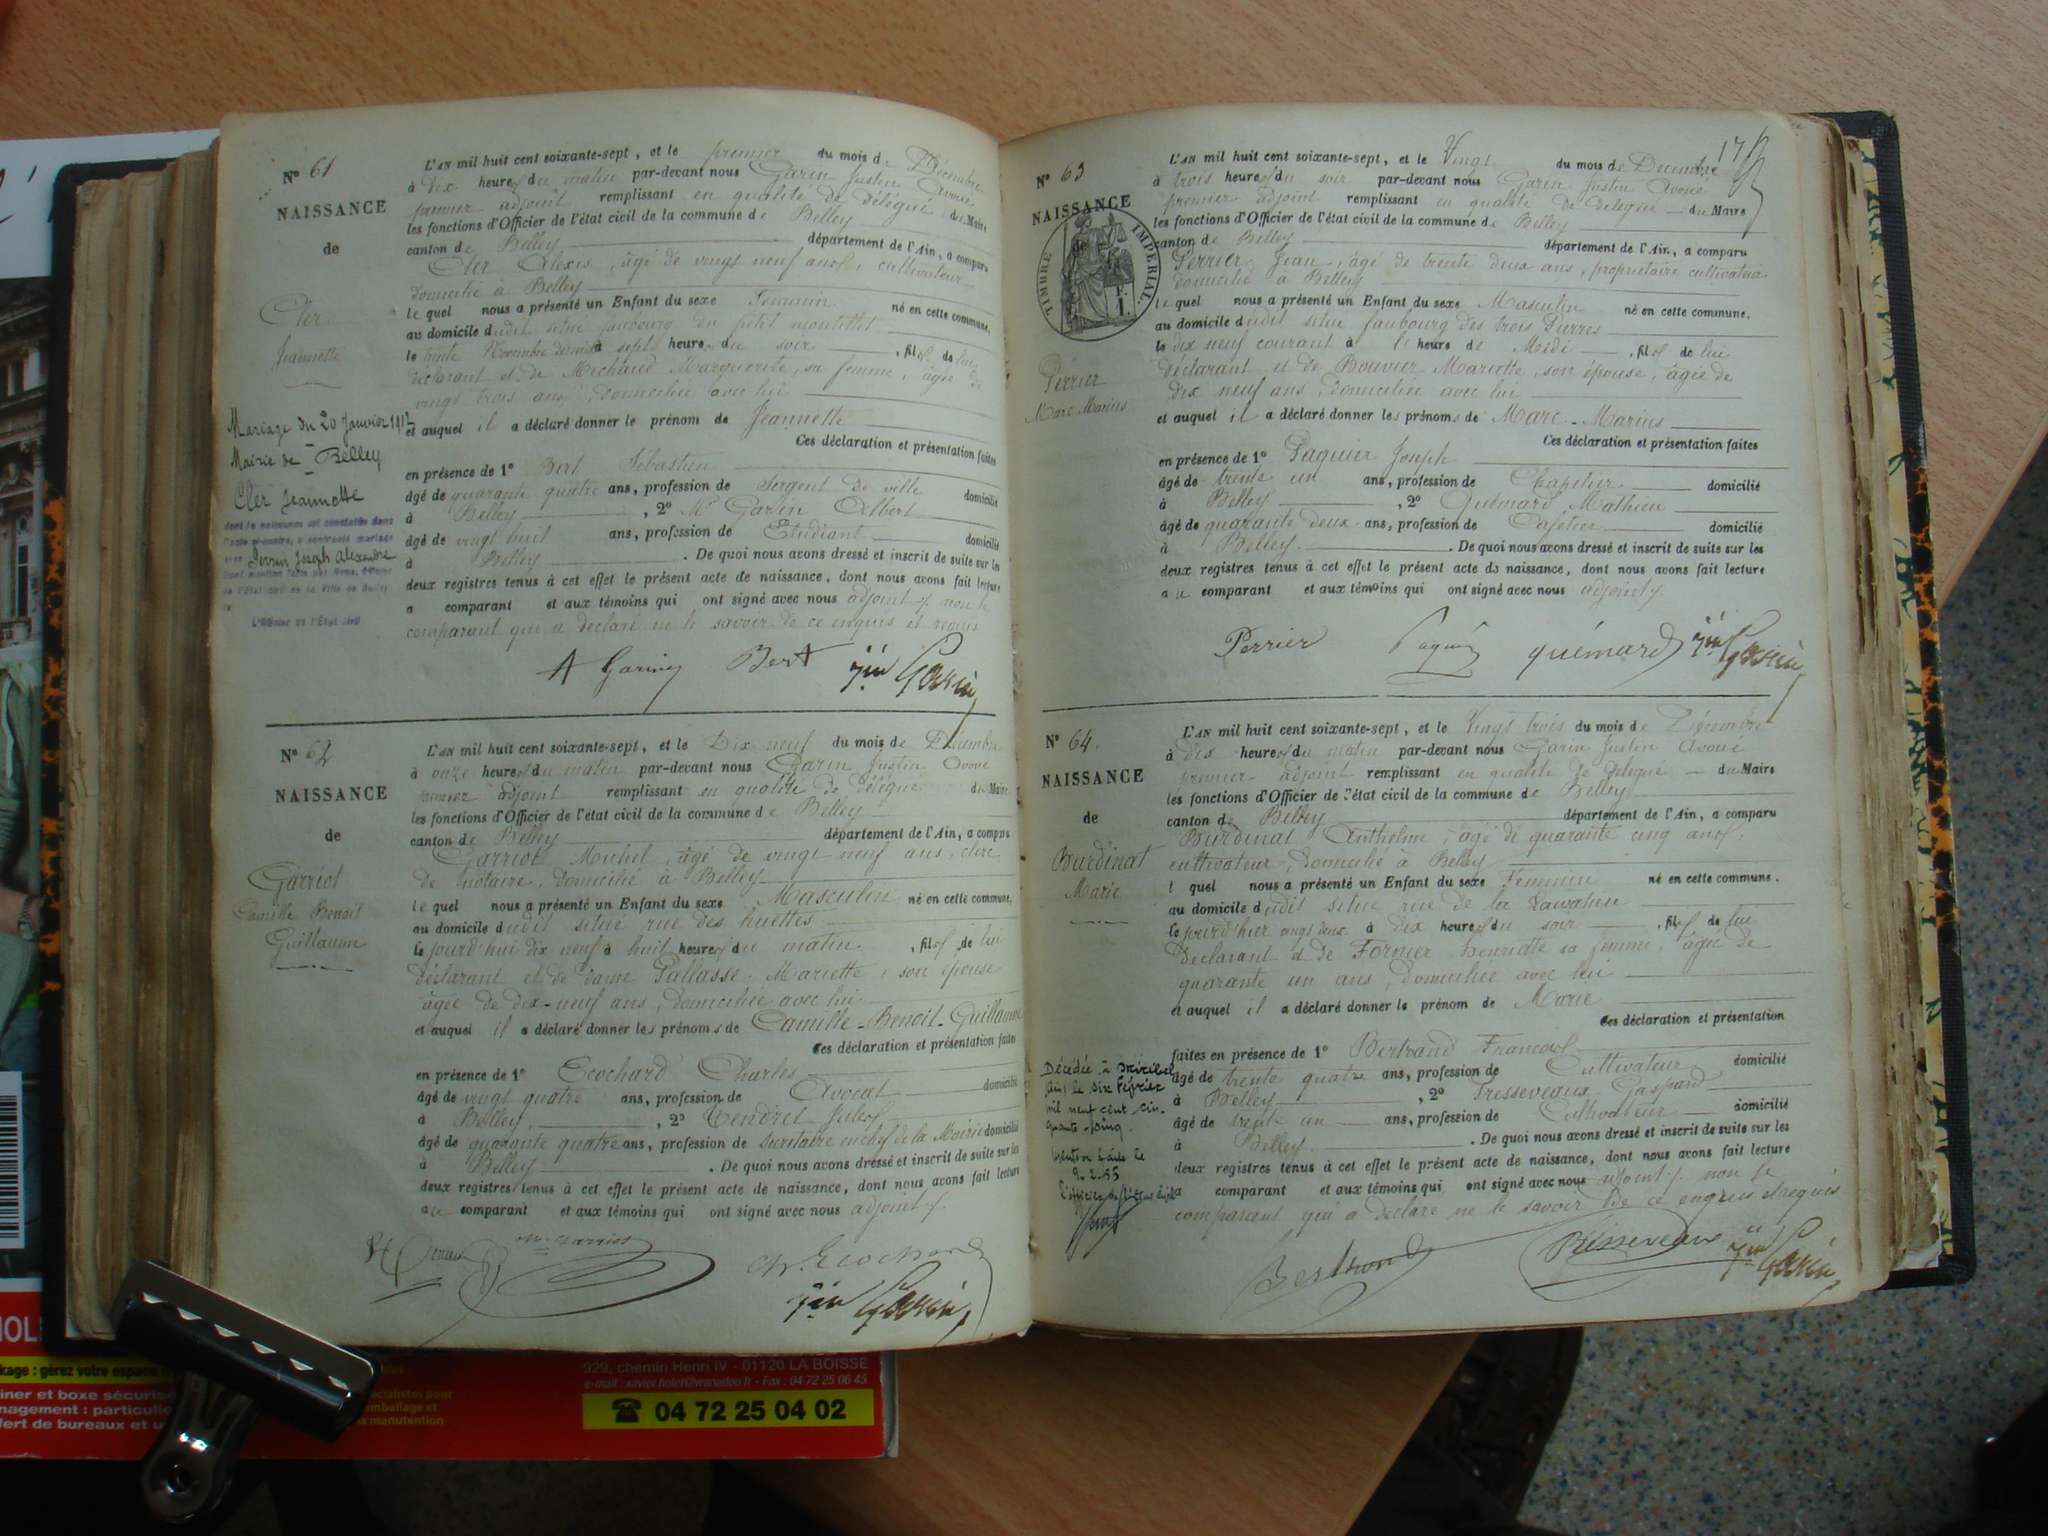 Nº 61
NAISSANCE
de
Cler
Jeannette
L'AN mil huit cent soixante-sept, et le premier du mois de Décembre
à dix heures du matin par-devant nous Garin Justin Avoué
premier adjoint remplissant en qualité de délégué du Maire
les fonctions d'Officier de l'état civil de la commune de Belley
canton de Belley département de l'Ain, a comparu
Cler Alexis, âgé de vingt neuf ans, cultivateur
domicilié à Belley
lequel nous a présenté un Enfant du sexe Féminin né en cette commune,
au domicile dudit situé faubourg du petit
le trente Novembre dernier à sept heures du soir, fille de lui
déclarant et de Michaud Marguerite, sa femme, âgée de
vingt trois ans, domiciliée avec lui
et auquel il a déclaré donner le prénom de Jeannette
Ces déclaration et présentation faites
en présence de 1º Bert Sébastien
âgé de quarante quatre ans, profession de Sergent de ville domicilié
à Belley, 2º Mr Garin Albert
âgé de vingt huit ans, profession de Etudiant domicilié
à Belley. De quoi nous avons dressé et inscrit de suite sur les
deux registres tenus à cet effet le présent acte de naissance, dont nous avons fait lecture
a comparant et aux témoins qui ont signé avec nous adjoint, non le
comparant qui a déclaré ne le savoir de ce enquis et requis
A Garin Bert Jin Garin
Mariage du 20 Janvier 1912
Mairie de Belley
Cler Jeannette
dont la naissance est constatée dans
l'acte ci-contre, a contracté mariage
avec Perrin Joseph Alexandre
de l'État civil de la Ville de Belley
L'Officier de l'État civil
Nº 62
NAISSANCE
de
Garriot
Camille Benoit
Guillaume
L'AN mil huit cent soixante-sept, et le Dix neuf du mois de Décembre
à onze heures du matin par-devant nous Garin Justin Avoué
premier adjoint remplissant en qualité de délégué du Maire
les fonctions d'Officier de l'état civil de la commune de Belley
canton de Belley département de l'Ain, a comparu
Garriot Michel, âgé de vingt neuf ans, clerc
de notaire, domicilié à Belley
lequel nous a présenté un Enfant du sexe Masculin né en cette commune,
au domicile dudit situé rue des huettes
le jourd'hui dix neuf à huit heures du matin, fils de lui
déclarant et de dame Pallasse Mariette, son épouse
âgée de dix-neuf ans, domiciliée avec lui
et auquel il a déclaré donner les prénoms de Camille-Benoit-Guillaume
Ces déclaration et présentation faites
en présence de 1º Ecochard Charles
âgé de vingt quatre ans, profession de Avocat domicilié
à Belley, 2º Tendret Jules
âgé de quarante quatre ans, profession de secrétaire en chef de la Mairie domicilié
à Belley. De quoi nous avons dressé et inscrit de suite sur les
deux registres tenus à cet effet le présent acte de naissance, dont nous avons fait lecture
au comparant et aux témoins qui ont signé avec nous adjoint.
m Garriot Ch. Ecochard
Jin Garin
17
Nº 63
NAISSANCE
de
TIMBRE IMPERIAL
1 F.
Perrier
Marc Marius
L'AN mil huit cent soixante-sept, et le Vingt du mois de Décembre
à trois heures du soir par-devant nous Garin Justin Avoué
premier adjoint remplissant en qualité de délégué du Maire
les fonctions d'Officier de l'état civil de la commune de Belley
canton de Belley département de l'Ain, a comparu
Perrier Jean, âgé de trente deux ans, propriétaire cultivateur
domicilié à Belley
lequel nous a présenté un Enfant du sexe Masculin né en cette commune,
au domicile dudit situé faubourg des trois Pierres
le dix neuf courant à l'heure de Midi, fils de lui
déclarant et de Bouvier Mariette, son épouse, âgée de
dix neuf ans, domiciliée avec lui
et auquel il a déclaré donner les prénoms de Marc-Marius
Ces déclaration et présentation faites
en présence de 1º Paquier Joseph
âgé de trente un ans, profession de Chapelier domicilié
à Belley, 2º Quémard Mathieu
âgé de quarante deux ans, profession de Cafetier domicilié
à Belley. De quoi nous avons dressé et inscrit de suite sur les
deux registres tenus à cet effet le présent acte de naissance, dont nous avons fait lecture
au comparant et aux témoins qui ont signé avec nous adjoint.
Perrier Paquier quémard Jin Garin
Nº 64.
NAISSANCE
de
Burdinat
Marie
L'AN mil huit cent soixante-sept, et le Vingt trois du mois de Décembre
à dix heures du matin par-devant nous Garin Justin Avoué
premier adjoint remplissant en qualité de délégué du Maire
les fonctions d'Officier de l'état civil de la commune de Belley
canton de Belley département de l'Ain, a comparu
Burdinat Anthelme, âgé de quarante cinq ans,
cultivateur, domicilié à Belley
l quel nous a présenté un Enfant du sexe Féminin né en cette commune.
au domicile dudit situé rue de la
le jour d'hier vingt deux à dix heures du soir, fille de lui
déclarant et de Fornier henriette sa femme, âgée de
quarante un ans, domiciliée avec lui
et auquel il a déclaré donner le prénom de Marie
Ces déclaration et présentation
faites en présence de 1º Bertrand François
âgé de trente quatre ans, profession de Cultivateur domicilié
à Belley, 2º Presseveaux Gaspard
âgé de trente un ans, profession de Cultivateur domicilié
à Belley. De quoi nous avons dressé et inscrit de suite sur les
deux registres tenus à cet effet le présent acte de naissance, dont nous avons fait lecture
a comparant et aux témoins qui ont signé avec nous adjoint, non le
comparant qui a déclaré ne le savoir de ce enquis et requis
Bertrand Presseveaux Jin Garin
Décédée à
(Ain) le six Février
mil neuf cent cin-
quante-cinq.
Mention faite le
9.2.55
L'officier de l'état civil
929, chemin Henri IV - 01120 LA BOISSE
e-mail : xavier.holet@wanadoo.fr - Fax : 04 72 25 06 45
☎ 04 72 25 04 02
kage : gérez votre espace
iner et boxe sécuris
nagement : particulie
fert de bureaux et u
spécialistes pour
emballage et
manutention